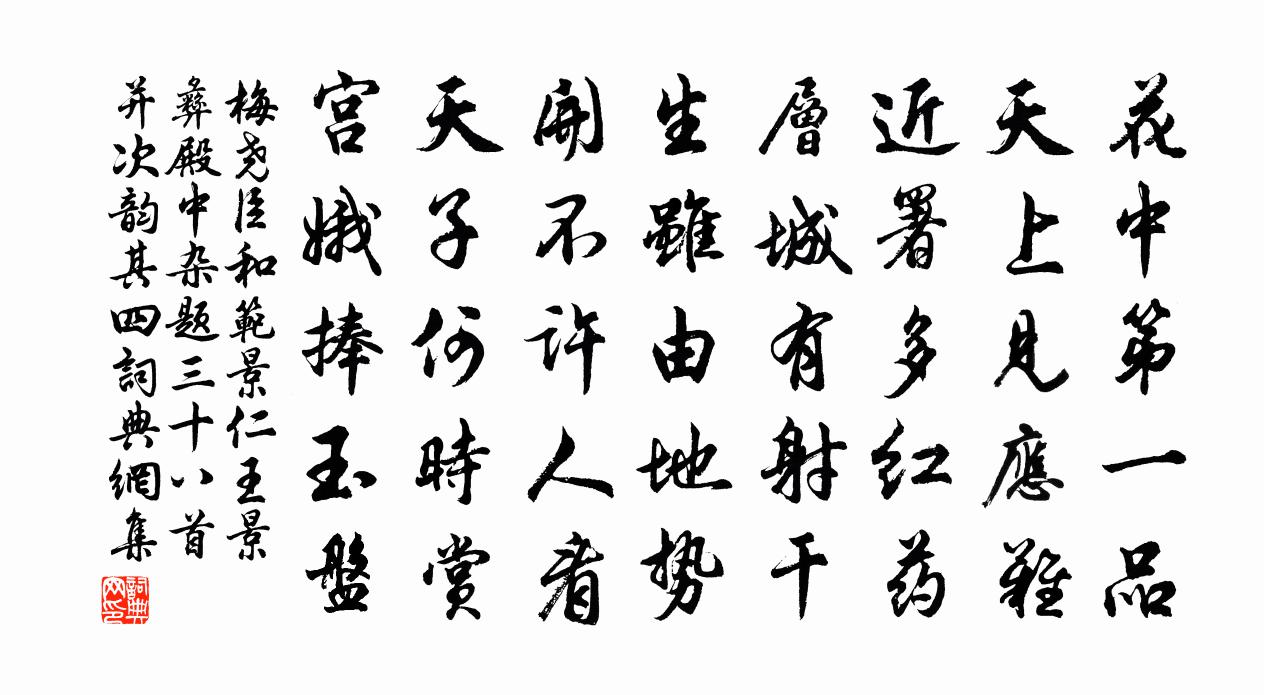 花中第一品
天上見應難
近署多红药
層城有射干
生雖由地势
開不許人看
天子何時賞
宫娥捧玉盤
梅尧臣和範景仁王景
彝殿中杂题三十八首
并次韵其四詞典網集
詞典
网印